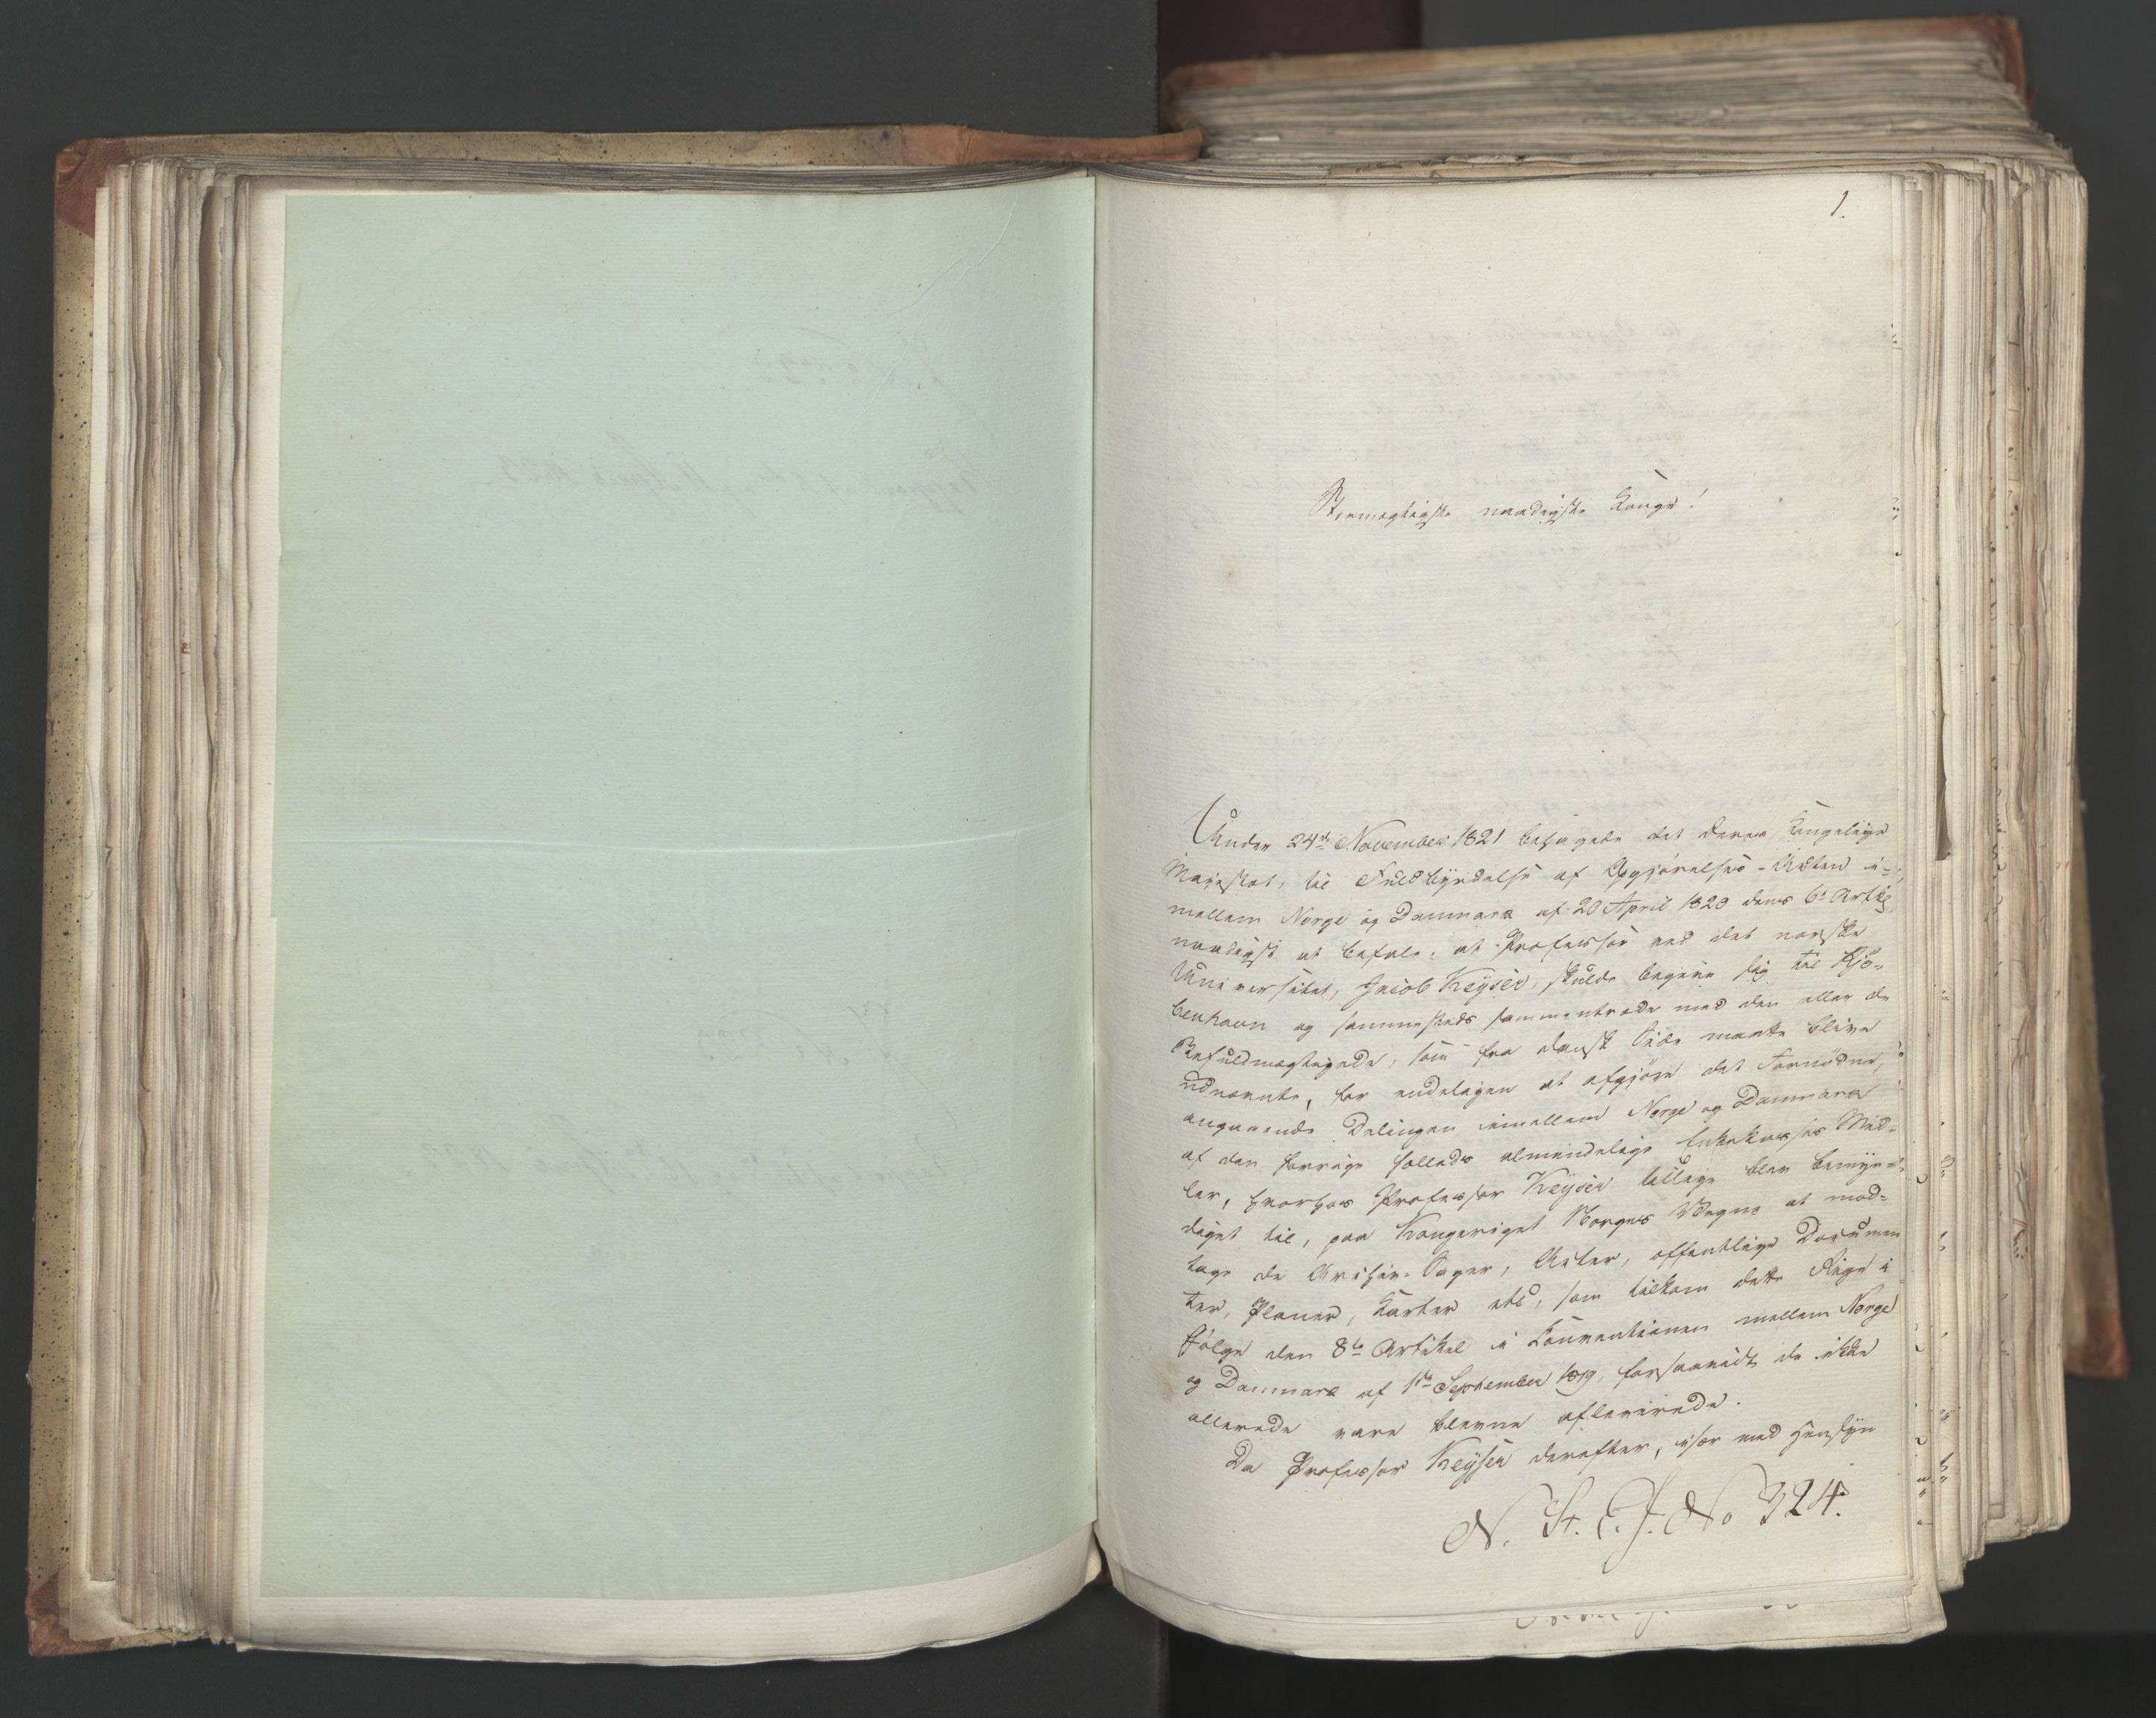 1.
Stormægtigste naadigste Konge!
Under 24de November 1821 behagede det Deres Kongelige
Majestæt, til Fuldbyrdelse af Opgjørelses-Acten i-
mellem Norge og Danmark af 20 April 1820 dens 6te Artkl,
naadigst at befale, at Professor ved det norske
Universitet, Jacob Keyser, skulde begive sig til Kjö-
benhavn og sammesteds sammentræde med den eller de
Befuldmægtigede, som fra dansk Side maatte blive
udnævnte, for endeligen at afgjöre det Fornödne,
angaaende Delingen imellem Norge og Danmark
af den forrige fælleds almindelige Enkekasses Mid-
ler, hvorhos Professor Keyser tillige blev bemyn-
diget til, paa Kongeriget Norges Vegne at mod-
tage de Archiv-Sager, Acter, offentlige Documen
ter, Planer, Karter etc, som tilkom dette Rige i
Fölge den 8de Artikel i Conventionen mellem Norge
og Danmark af 1ste September 1819, forsaavidt de ikke
allerede vare blevne afleverede.
Da Professor Keyser derefter, især med Hensyn
N. St. E. J. No 324.